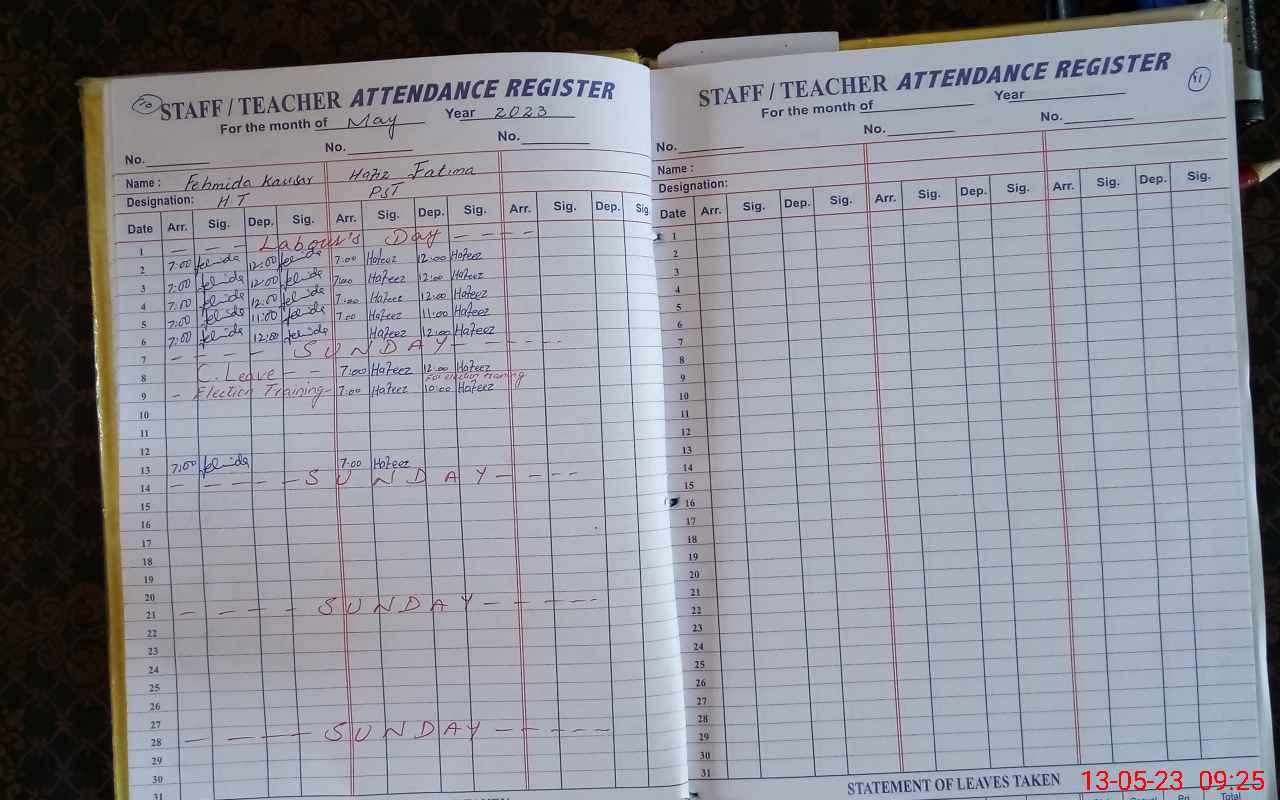 10 STAFF / TEACHER ATTENDANCE REGISTER
For the month of May Year 2023
No. No. No.
Name : Fehmida Kausar Hafiz Fatima
Designation: H.T PST
Date Arr. Sig. Dep. Sig. Arr. Sig. Dep. Sig. Arr. Sig. Dep. Sig.
1 - - - Labour's Day - - - -
2 7:00 12:00 7:00 Hafeez 12:00 Hafeez
3 7:00 12:00 7:00 Hafeez 12:00 Hafeez
4 7:00 12:00 7:00 Hafeez 12:00 Hafeez
5 7:00 11:00 7:00 Hafeez 11:00 Hafeez
6 7:00 12:00 Hafeez 12:00 Hafeez
7 - - - - SUNDAY - - - - -
8 C. Leave - - 7:00 Hafeez 12:00 Hafeez
For election training
9 - Election Training - 7:00 Hafeez 10:00 Hafeez
10
11
12
13 7:00 7:00 Hafeez
14 - - - - - SUNDAY - - - -
15
16
17
18
19
20
21 - - - - SUNDAY - - - - -
22
23
24
25
26
27
28 - - - - SUNDAY - - - - -
29
30
31
11
STAFF / TEACHER ATTENDANCE REGISTER
For the month of Year
No. No. No.
Name :
Designation:
Date Arr. Sig. Dep. Sig. Arr. Sig. Dep. Sig. Arr. Sig. Dep. Sig.
1
2
3
4
5
6
7
8
9
10
11
12
13
14
15
16
17
18
19
20
21
22
23
24
25
26
27
28
29
30
31
STATEMENT OF LEAVES TAKEN
13-05-23 09:25
Total